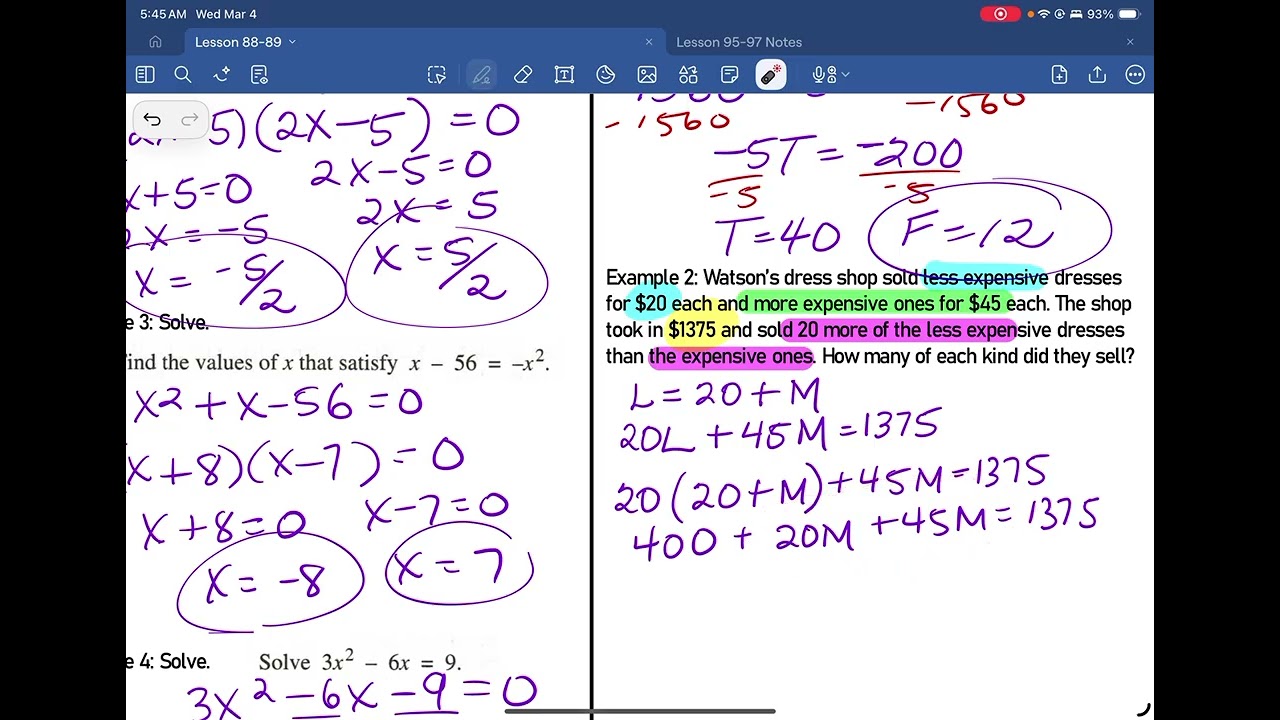 5:45 AM Wed Mar 4
93%
Lesson 88-89
Lesson 95-97 Notes
5)(2x-5) = 0
x+5=0
2x-5=0
x = -5
2x = 5
x = -5/2
x = 5/2
e 3: Solve.
ind the values of x that satisfy x - 56 = -x².
x² + x - 56 = 0
(x+8)(x-7) = 0
x+8=0
x-7=0
x = -8
x = 7
e 4: Solve. Solve 3x² - 6x = 9.
3x² - 6x - 9 = 0
-1560
-1560
-5T = -200
-5 -5
T=40
F=12
Example 2: Watson's dress shop sold less expensive dresses
for $20 each and more expensive ones for $45 each. The shop
took in $1375 and sold 20 more of the less expensive dresses
than the expensive ones. How many of each kind did they sell?
L = 20 + M
20L + 45M = 1375
20(20+M)+45M=1375
400 + 20M +45M= 1375